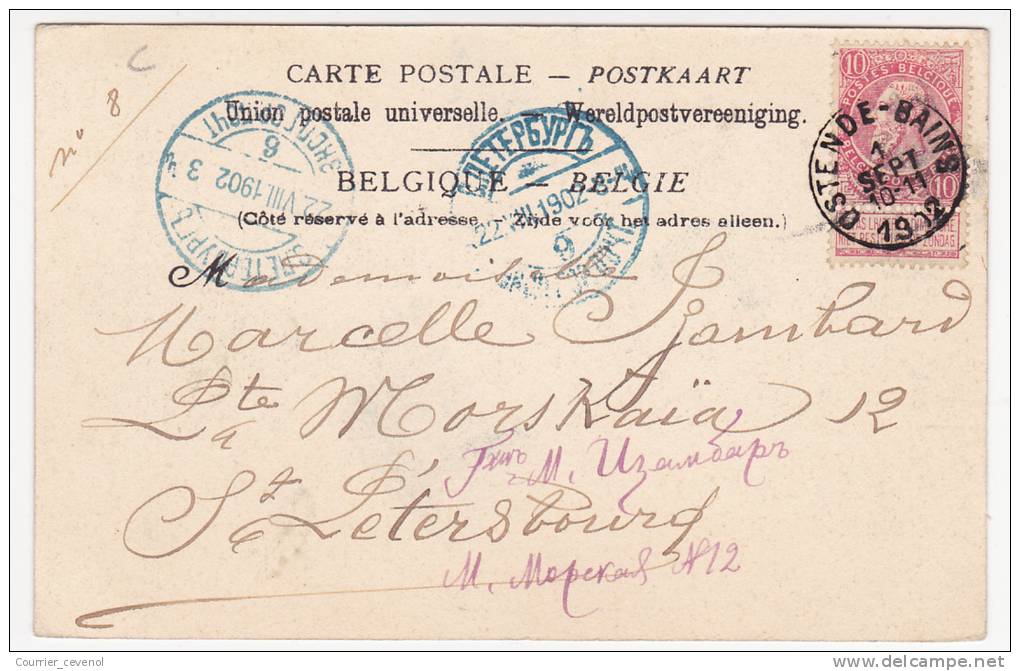 CARTE POSTALE – POSTKAART
Union postale universelle. – Wereldpostvereeniging.
BELGIQUE – BELGIE
(Côté réservé à l'adresse. – Zijde voor het adres alleen.)
C
nº 8
10 10
POSTES BELGIQUE
OSTENDE-BAINS
1
SEPT
10-11
1902
С.ПЕТЕРБУРГЪ
22.VIII.1902 3
6
С.ПЕТЕРБУРГЪ
22.VIII.1902
9
Mademoiselle
Marcelle Izambard
Pte Morskaïa 12
à
St Pétersbourg
М. Изамбаръ
М. Морская №12
Courrier_cevenol
delcampe.net